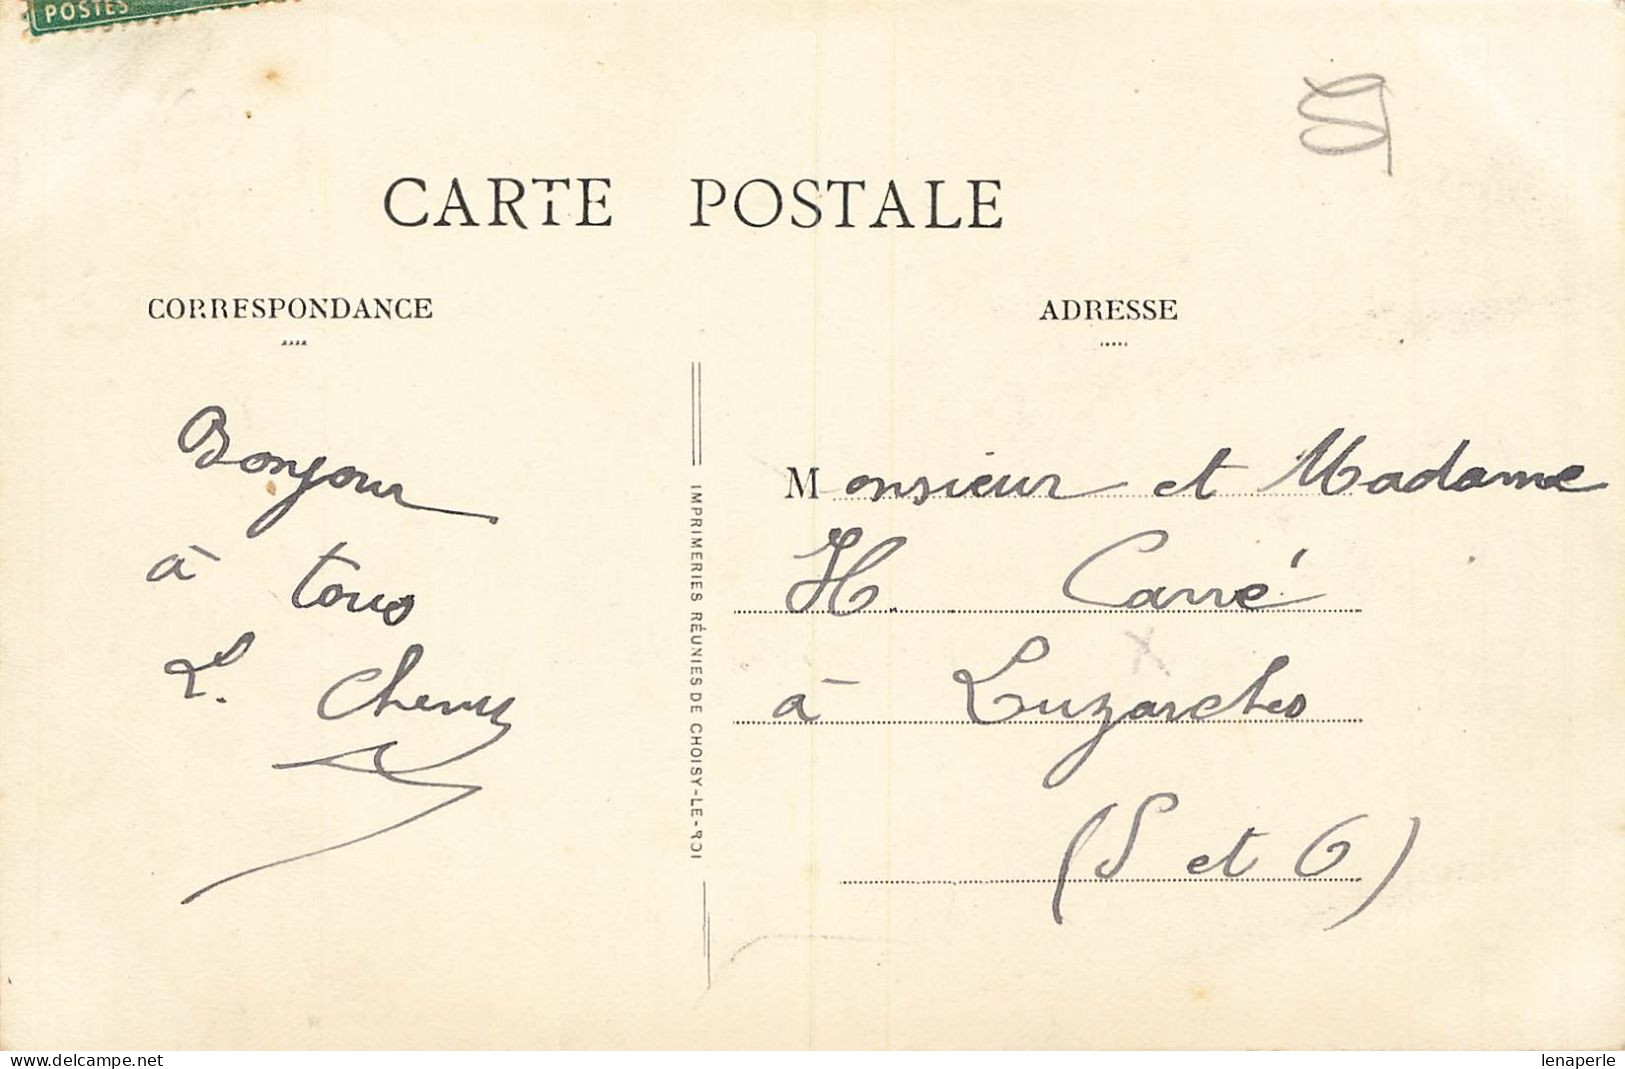 POSTES
CARTE POSTALE
CORRESPONDANCE
ADRESSE
Bonjour
à tous
L.
IMPRIMERIES RÉUNIES DE CHOISY-LE-ROI
Monsieur et Madame
H. Carré
à Luzarches
(S et O)
delcampe.net
lenaperle